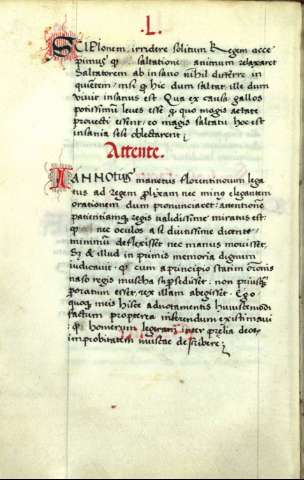 L.
SCIPIonem, irridere solitum Regem acce
pimus q saltatione animum relaxaret
Saltatorem ab insano nihil differre in
quiens: nisi q hic dum saltat ille dum
vivit insanus est. Qua ex causa gallos
potissimum leves esse q quo magis aetate
provecti essent eo magis saltatu hoc est
insania sese oblectarent;
Attente.
IANNOtius manetus florentinorum lega
tus ad regem prolixam nec minus elegantem
orationem dum pronunciaret: attentionem
patientiamque regis validissime miratus est:
q nec oculos a se diutissime dicente
minimum deflexisset nec manus movisset,
Sed & illud in primis memoria dignum
iudicavit: q cum a principio statim orationis
naso regis muscha supsedisset non priusquam
peroratum esset, rex illam abegisset. Ego
quoque meis hisce adnotamentis huiuscemodi
factum propterea inserendum existimavi
q homerum legeram inter prelia deorum
improbitatem muscae describere;